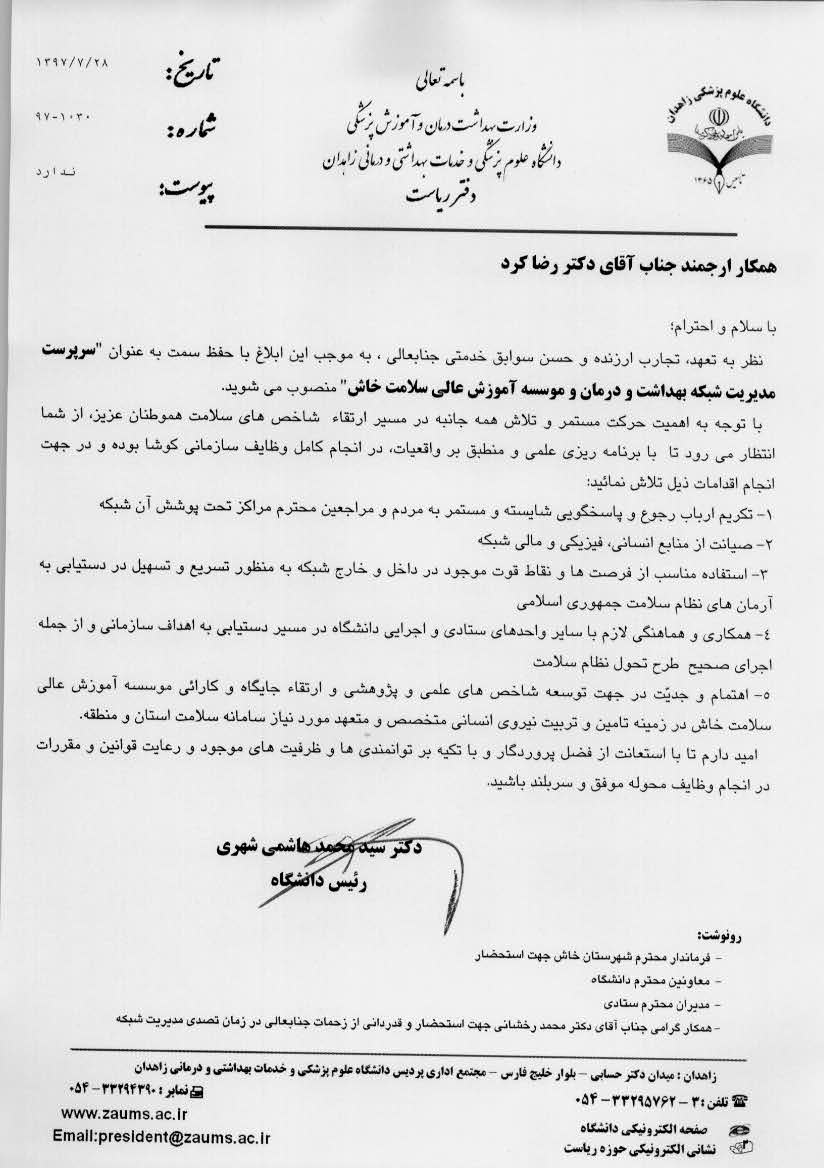 باسمه تعالی
وزارت بهداشت درمان و آموزش پزشکی
دانشگاه علوم پزشکی و خدمات بهداشتی و درمانی زاهدان
دفتر ریاست
تاریخ: ۱۳۹۷/۷/۲۸
شماره: ۹۷-۱۰۳۰
پیوست: ندارد
دانشگاه علوم پزشکی زاهدان
تاسیس ۱۳۶۵
همکار ارجمند جناب آقای دکتر رضا کرد
با سلام و احترام؛
نظر به تعهد، تجارب ارزنده و حسن سوابق خدمتی جنابعالی ، به موجب این ابلاغ با حفظ سمت به عنوان "سرپرست
مدیریت شبکه بهداشت و درمان و موسسه آموزش عالی سلامت خاش" منصوب می شوید.
با توجه به اهمیت حرکت مستمر و تلاش همه جانبه در مسیر ارتقاء شاخص های سلامت هموطنان عزیز، از شما
انتظار می رود تا با برنامه ریزی علمی و منطبق بر واقعیات، در انجام کامل وظایف سازمانی کوشا بوده و در جهت
انجام اقدامات ذیل تلاش نمائید:
۱- تکریم ارباب رجوع و پاسخگویی شایسته و مستمر به مردم و مراجعین محترم مراکز تحت پوشش آن شبکه
۲- صیانت از منابع انسانی، فیزیکی و مالی شبکه
۳- استفاده مناسب از فرصت ها و نقاط قوت موجود در داخل و خارج شبکه به منظور تسریع و تسهیل در دستیابی به
آرمان های نظام سلامت جمهوری اسلامی
۴- همکاری و هماهنگی لازم با سایر واحدهای ستادی و اجرایی دانشگاه در مسیر دستیابی به اهداف سازمانی و از جمله
اجرای صحیح طرح تحول نظام سلامت
۵- اهتمام و جدیّت در جهت توسعه شاخص های علمی و پژوهشی و ارتقاء جایگاه و کارائی موسسه آموزش عالی
سلامت خاش در زمینه تامین و تربیت نیروی انسانی متخصص و متعهد مورد نیاز سامانه سلامت استان و منطقه.
امید دارم تا با استعانت از فضل پروردگار و با تکیه بر توانمندی ها و ظرفیت های موجود و رعایت قوانین و مقررات
در انجام وظایف محوله موفق و سربلند باشید.
دکتر سید محمد هاشمی شهری
رئیس دانشگاه
رونوشت:
- فرماندار محترم شهرستان خاش جهت استحضار
- معاونین محترم دانشگاه
- مدیران محترم ستادی
- همکار گرامی جناب آقای دکتر محمد رخشانی جهت استحضار و قدردانی از زحمات جنابعالی در زمان تصدی مدیریت شبکه
زاهدان : میدان دکتر حسابی - بلوار خلیج فارس - مجتمع اداری پردیس دانشگاه علوم پزشکی و خدمات بهداشتی و درمانی زاهدان
تلفن: ۳ - ۳۳۲۹۵۷۶۲ - ۰۵۴ نمابر : ۳۳۲۹۴۳۹۰ - ۰۵۴
صفحه الکترونیکی دانشگاه www.zaums.ac.ir
نشانی الکترونیکی حوزه ریاست Email:president@zaums.ac.ir